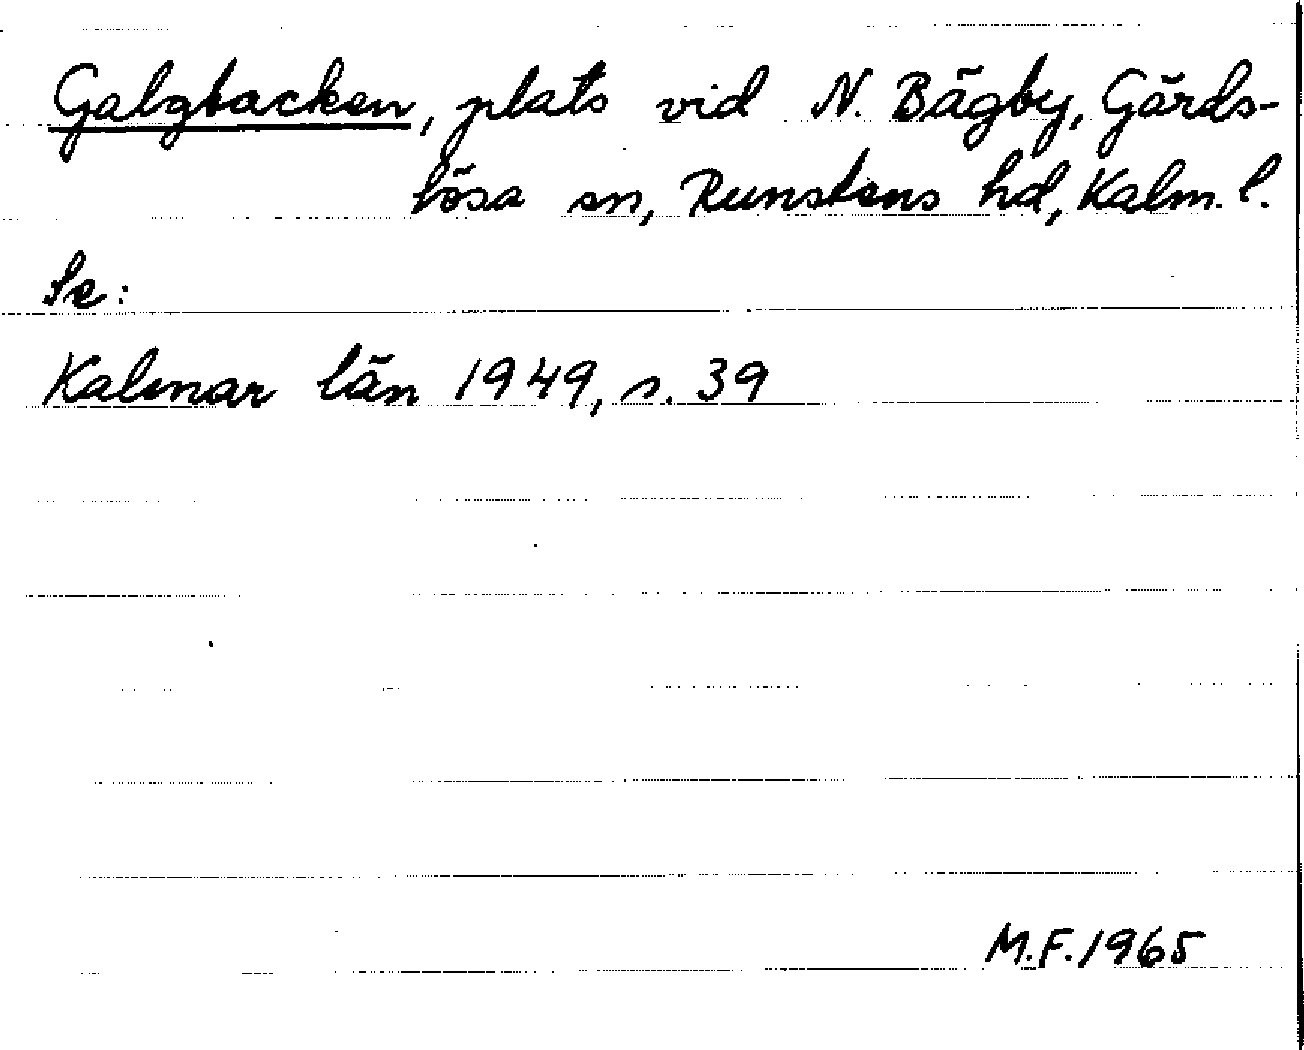 Galgbacken, plats vid N. Bägby, Gärds-
lösa sn, Runstens hd, Kalm. l.
Se:
Kalmar län 1949, s. 39
M.F. 1965